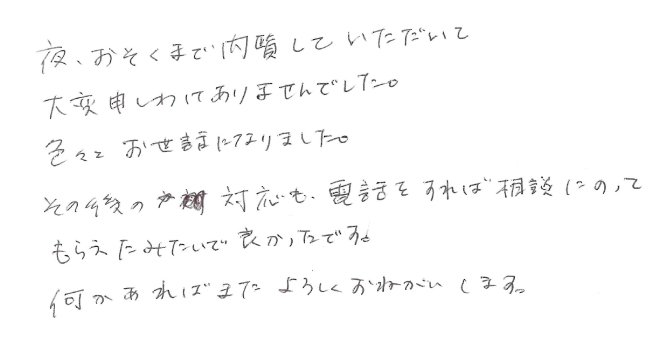 夜、おそくまで内覧して いただいて
大変申しわけありませんでした。
色々と お世話になりました。
その後の 対応も、電話をすれば相談にのって
もらえたみたいで良かったです。
何かあればまた よろしくおねがいします。